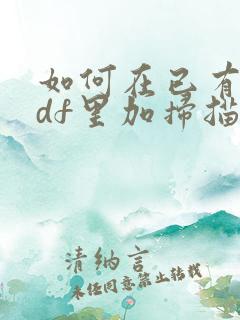 如何在已有
df里加扫描
清纳言
未经同意禁止转载